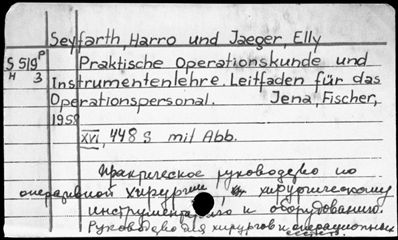 Seyfarth, Harro und Jaeger, Elly
S 519 P Praktische Operationskunde und
H 3 Instrumentenlehre. Leitfaden für das
Operationspersonal. Jena, Fischer,
1958
XVI, 448 S mit Abb.
Практическое руководство по
оперативной хирургии и хирургическому
инструментарию и оборудованию.
Руководство для хирургов и операционных
сестер.